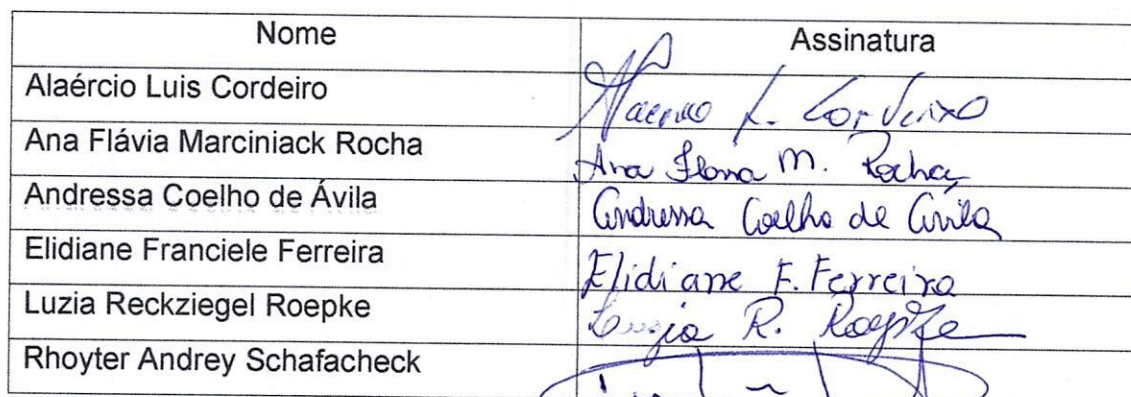 Nome Assinatura
Alaércio Luis Cordeiro Alaercio L. Cordeiro
Ana Flávia Marciniack Rocha Ana Flavia M. Rocha
Andressa Coelho de Ávila Andressa Coelho de Ávila
Elidiane Franciele Ferreira Elidiane F. Ferreira
Luzia Reckziegel Roepke Luzia R. Roepke
Rhoyter Andrey Schafacheck